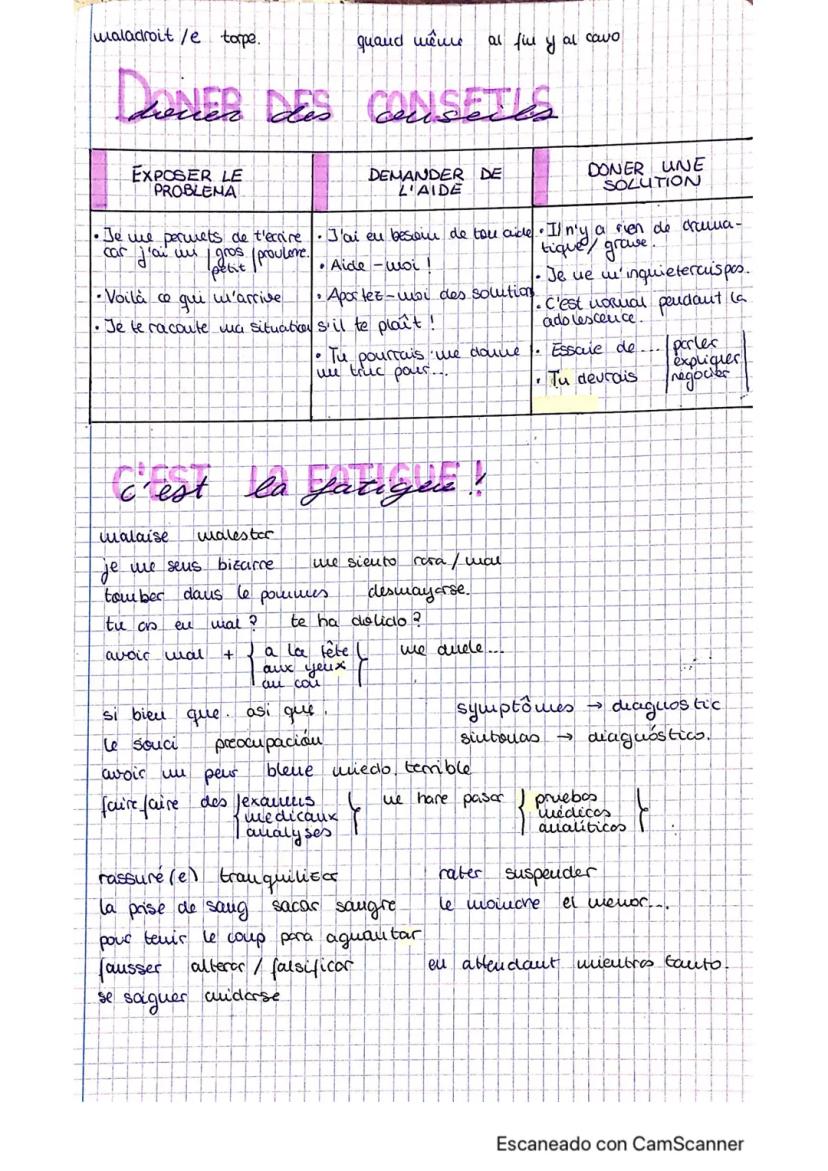 maladroit/e tope. quand même al fin y al cavo
DONER DES CONSEILS
doner des conseils
EXPOSER LE PROBLEMA
DEMANDER DE L'AIDE
DONER UNE SOLUTION
• Je me permets de t'ecrire
car j'ai un | gros petit | problème.
• Voilà ce qui m'arrive
• Je te raconte ma situation
• J'ai eu besoin de ton aide
• Aide-moi !
• Aportez-moi des solution
s'il te plaît !
• Tu pourrais me donne
un truc pour...
• Il n'y a rien de drama-
tique/ grave.
• Je ne m'inquieterais pas.
• C'est normal pendant la
adolescence.
• Essaie de ... | parler
expliquer
• Tu devrais | negocier
C'EST LA FATIGUE !
c'est la fatigue !
malaise malestar
je me sens bizarre me siento rara / mal
tomber dans le pommes desmayarse.
tu as eu mal ? te ha dolido ?
avoir mal + { a la tête me duele...
aux yeux
au cou
si bien que. asi que. symptômes → diagnostic
le souci preocupación sintomas → diagnóstico.
avoir un peur bleue miedo terrible
faire faire des { examens me hare pasar { pruebas
medicaux médicas
analyses analíticos
rassuré(e) tranquilizar rater suspender
la prise de sang sacar sangre le moindre el menor...
pour tenir le coup para aguantar
fausser alterar / falsificar en attendant mientras tanto.
se soigner cuidarse
Escaneado con CamScanner